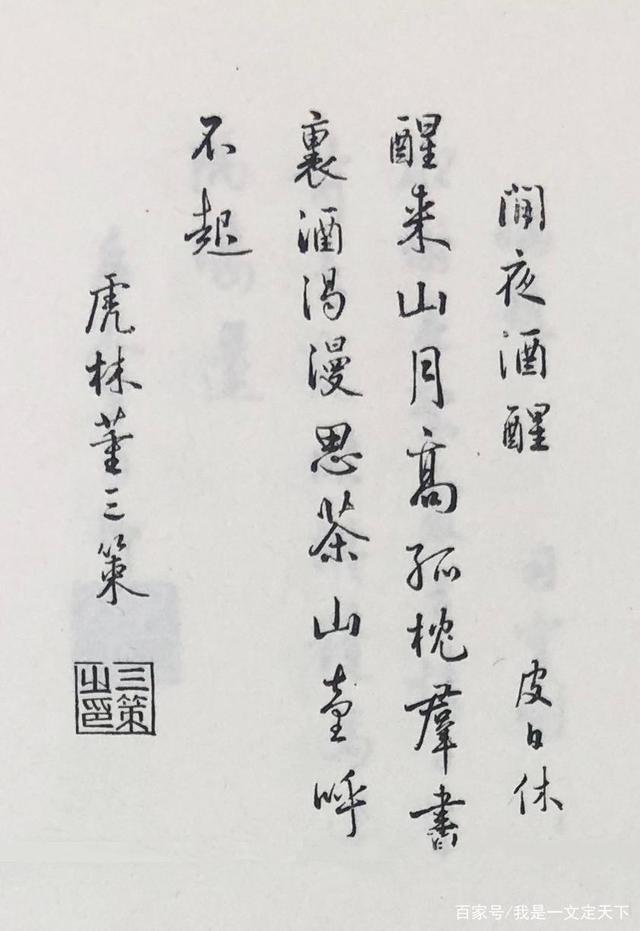 閒夜酒醒
皮日休
醒來山月高孤枕羣書
裏酒渴漫思茶山童呼
不起
虎林董三策
三策之印
百家号/我是一文定天下